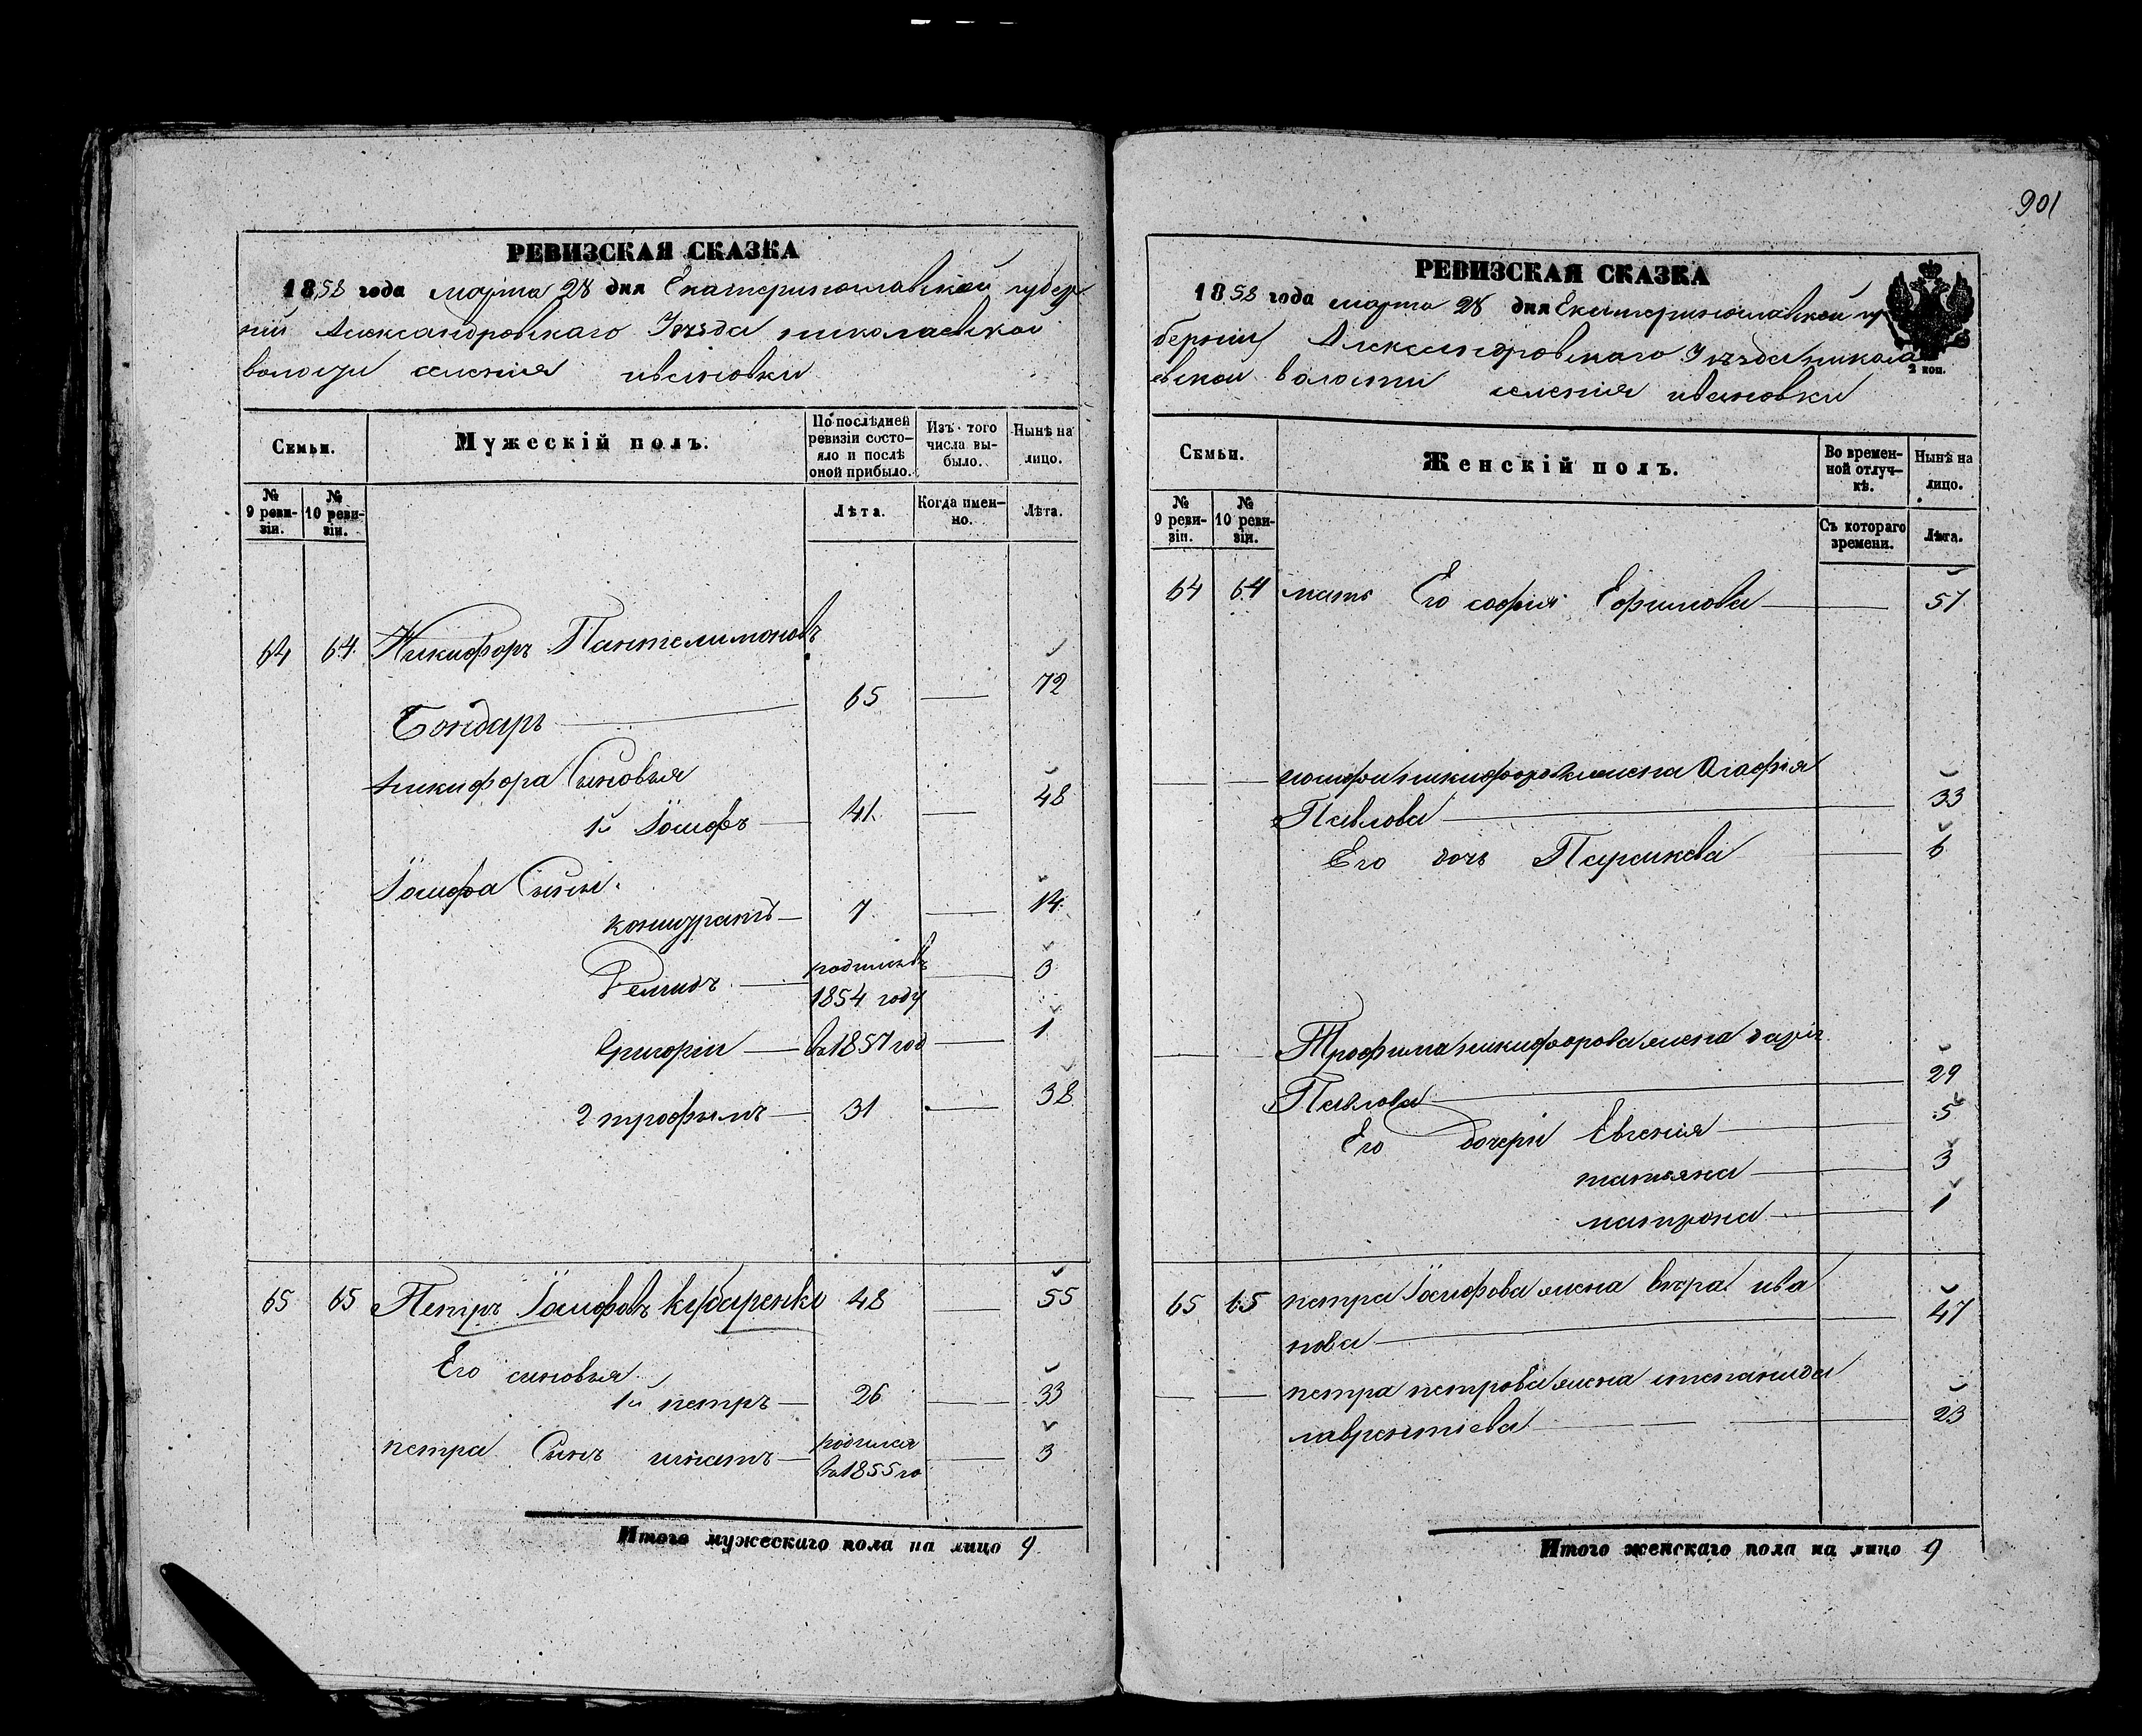 901
РЕВИЗСКАЯ СКАЗКА
1858 года марта 28 дня Екатеринославской губер
ніи Александровскаго Уѣзда николаевской
волости селенія ивановки
Семьи.
Мужескій полъ.
По послѣдней ревизіи состо-
яло и послѣ оной прибыло.
Изъ того числа вы-
было.
Нынѣ на лицо.
№ 9 реви-
зіи.
№ 10 реви-
зіи.
Лѣта.
Когда имен-
но.
Лѣта.
64 64 Никифоръ Пантелимоновъ
Бондарь 65 72
Никифора Сыновья
1й Іосифъ 41 48
Іосифа Сыны
кондратъ 7 14
родился въ
1854 году 3
Григорій въ 1857 год 1
2 трофимъ 31 38
65 65 Петръ Іосифовъ 48 55
Его сыновья
1й петръ 26 33
петра Сынъ игнатъ родился
въ 1855 го 3
Итого мужескаго пола на лицо 9
РЕВИЗСКАЯ СКАЗКА
1858 года марта 28 дня Екатеринославской гу
берніи Александровскаго Уѣзда никола
евской волости селенія ивановки
2 коп.
Семьи.
Женскій полъ.
Во времен-
ной отлуч-
кѣ.
Нынѣ на лицо.
№ 9 реви-
зіи.
№ 10 реви-
зіи.
Съ котораго времени.
Лѣта.
64 64 мать Его софія Ефимова 51
иосифа никифорова жена Агафія
Павлова 33
Его дочь Параскева 6
Трофима никифорова жена дарія
Павлова 29
Его дочери Евгенія 5
татьяна 3
матрона 1
65 65 петра Іосифова жена вѣра ива
нова 47
петра петрова жена степанида
лаврентіева 23
Итого женскаго пола на лицо 9